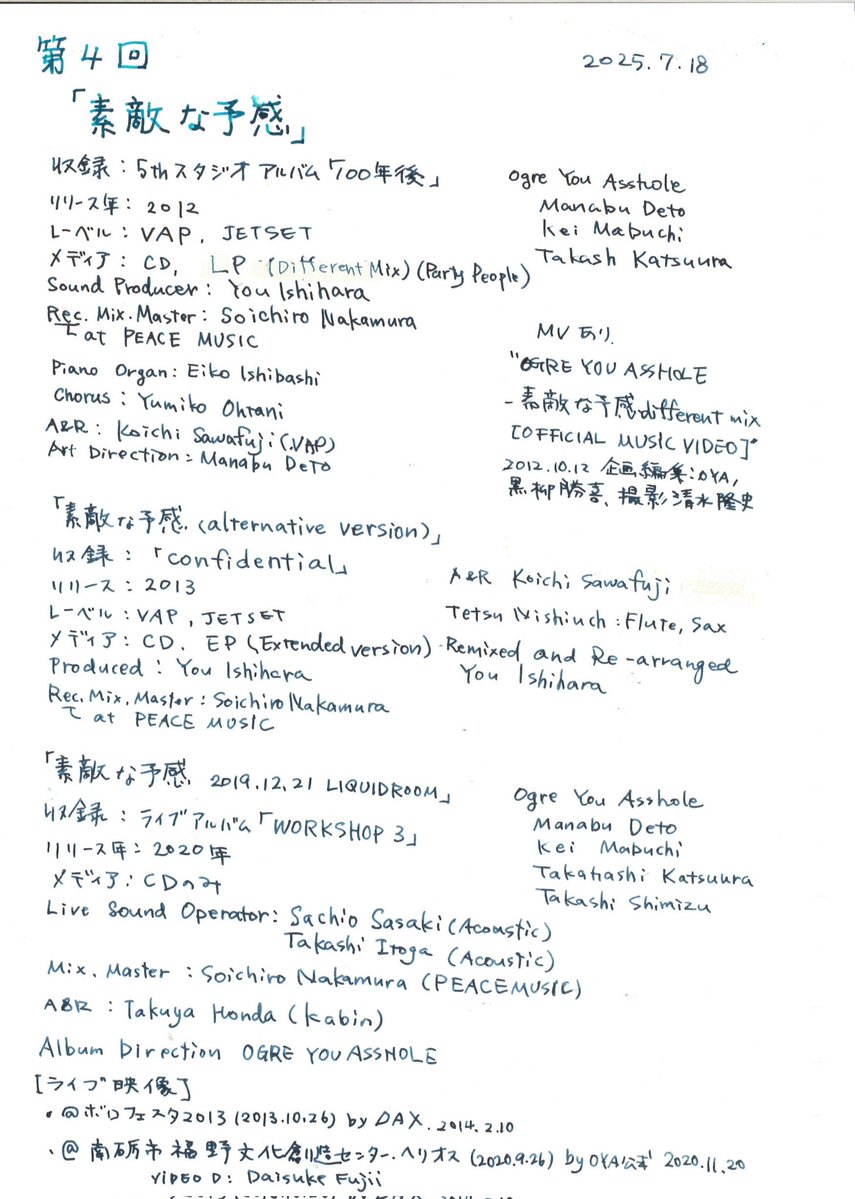 第4回
2025.7.18
「素敵な予感」
収録：5thスタジオアルバム「100年後」
リリース年：2012
レーベル：VAP, JETSET
メディア：CD, LP (Different Mix) (Party People)
Sound Producer: You Ishihara
Rec. Mix. Master: Soichiro Nakamura
at PEACE MUSIC
Piano Organ: Eiko Ishibashi
Chorus: Yumiko Ohtani
A&R: Koichi Sawafuji (VAP)
Art Direction: Manabu Deto
Ogre You Asshole
Manabu Deto
Kei Mabuchi
Takash Katsuura
MVあり.
"OGRE YOU ASSHOLE
- 素敵な予感 different mix
[OFFICIAL MUSIC VIDEO]"
2012.10.12 企画編集：OYA,
黒柳勝喜、撮影 清水隆史
「素敵な予感 (alternative version)」
収録：「confidential」
リリース：2013
レーベル：VAP, JETSET
メディア：CD. EP (Extended version)
Produced: You Ishihara
Rec. Mix. Master: Soichiro Nakamura
at PEACE MUSIC
A&R Koichi Sawafuji
Tetsu Nishiuch: Flute, Sax
Remixed and Re-arranged
You Ishihara
「素敵な予感 2019.12.21 LIQUIDROOM」
収録：ライブアルバム「WORKSHOP 3」
リリース年：2020年
メディア：CDのみ
Live Sound Operator: Sachio Sasaki (Acoustic)
Takashi Itoga (Acoustic)
Mix. Master: Soichiro Nakamura (PEACE MUSIC)
A&R: Takuya Honda (Kabin)
Album Direction OGRE YOU ASSHOLE
Ogre You Asshole
Manabu Deto
Kei Mabuchi
Takahashi Katsuura
Takashi Shimizu
[ライブ映像]
・@ボロフェスタ2013 (2013.10.26) by DAX. 2014.2.10
・@南砺市福野文化創造センター.ヘリオス (2020.9.26) by OYA公式 2020.11.20
VIDEO D: Daisuke Fujii